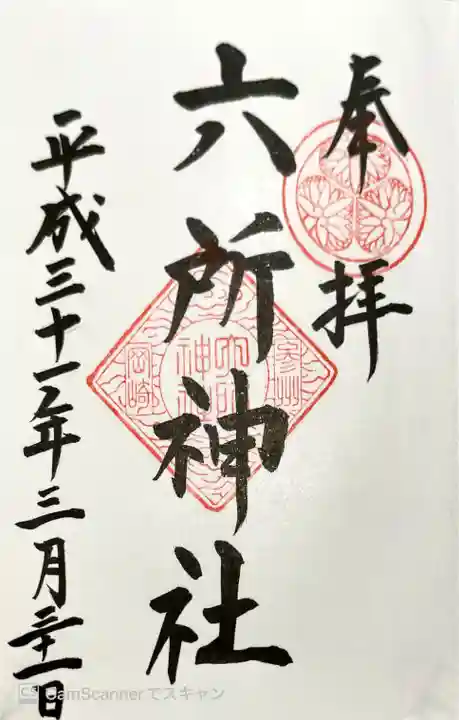 奉拝
六所神社
平成三十一年三月三十一日
参州
六所神社
岡崎
CS CamScannerでスキャン